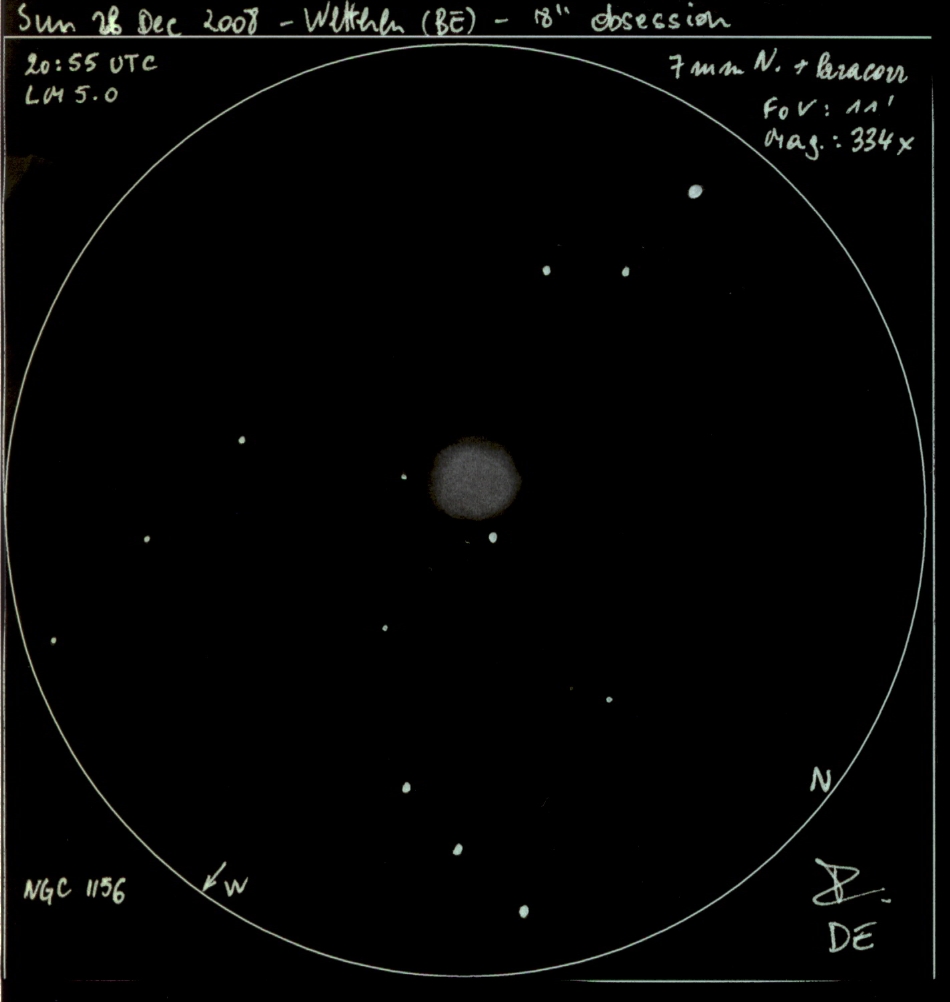 Sun 28 Dec 2008 - (BE) - 18" obsession
20:55 UTC
LM 5.0
7mm N. + Paracorr
FoV: 11'
Mag.: 334x
N
W
NGC 1156
DE